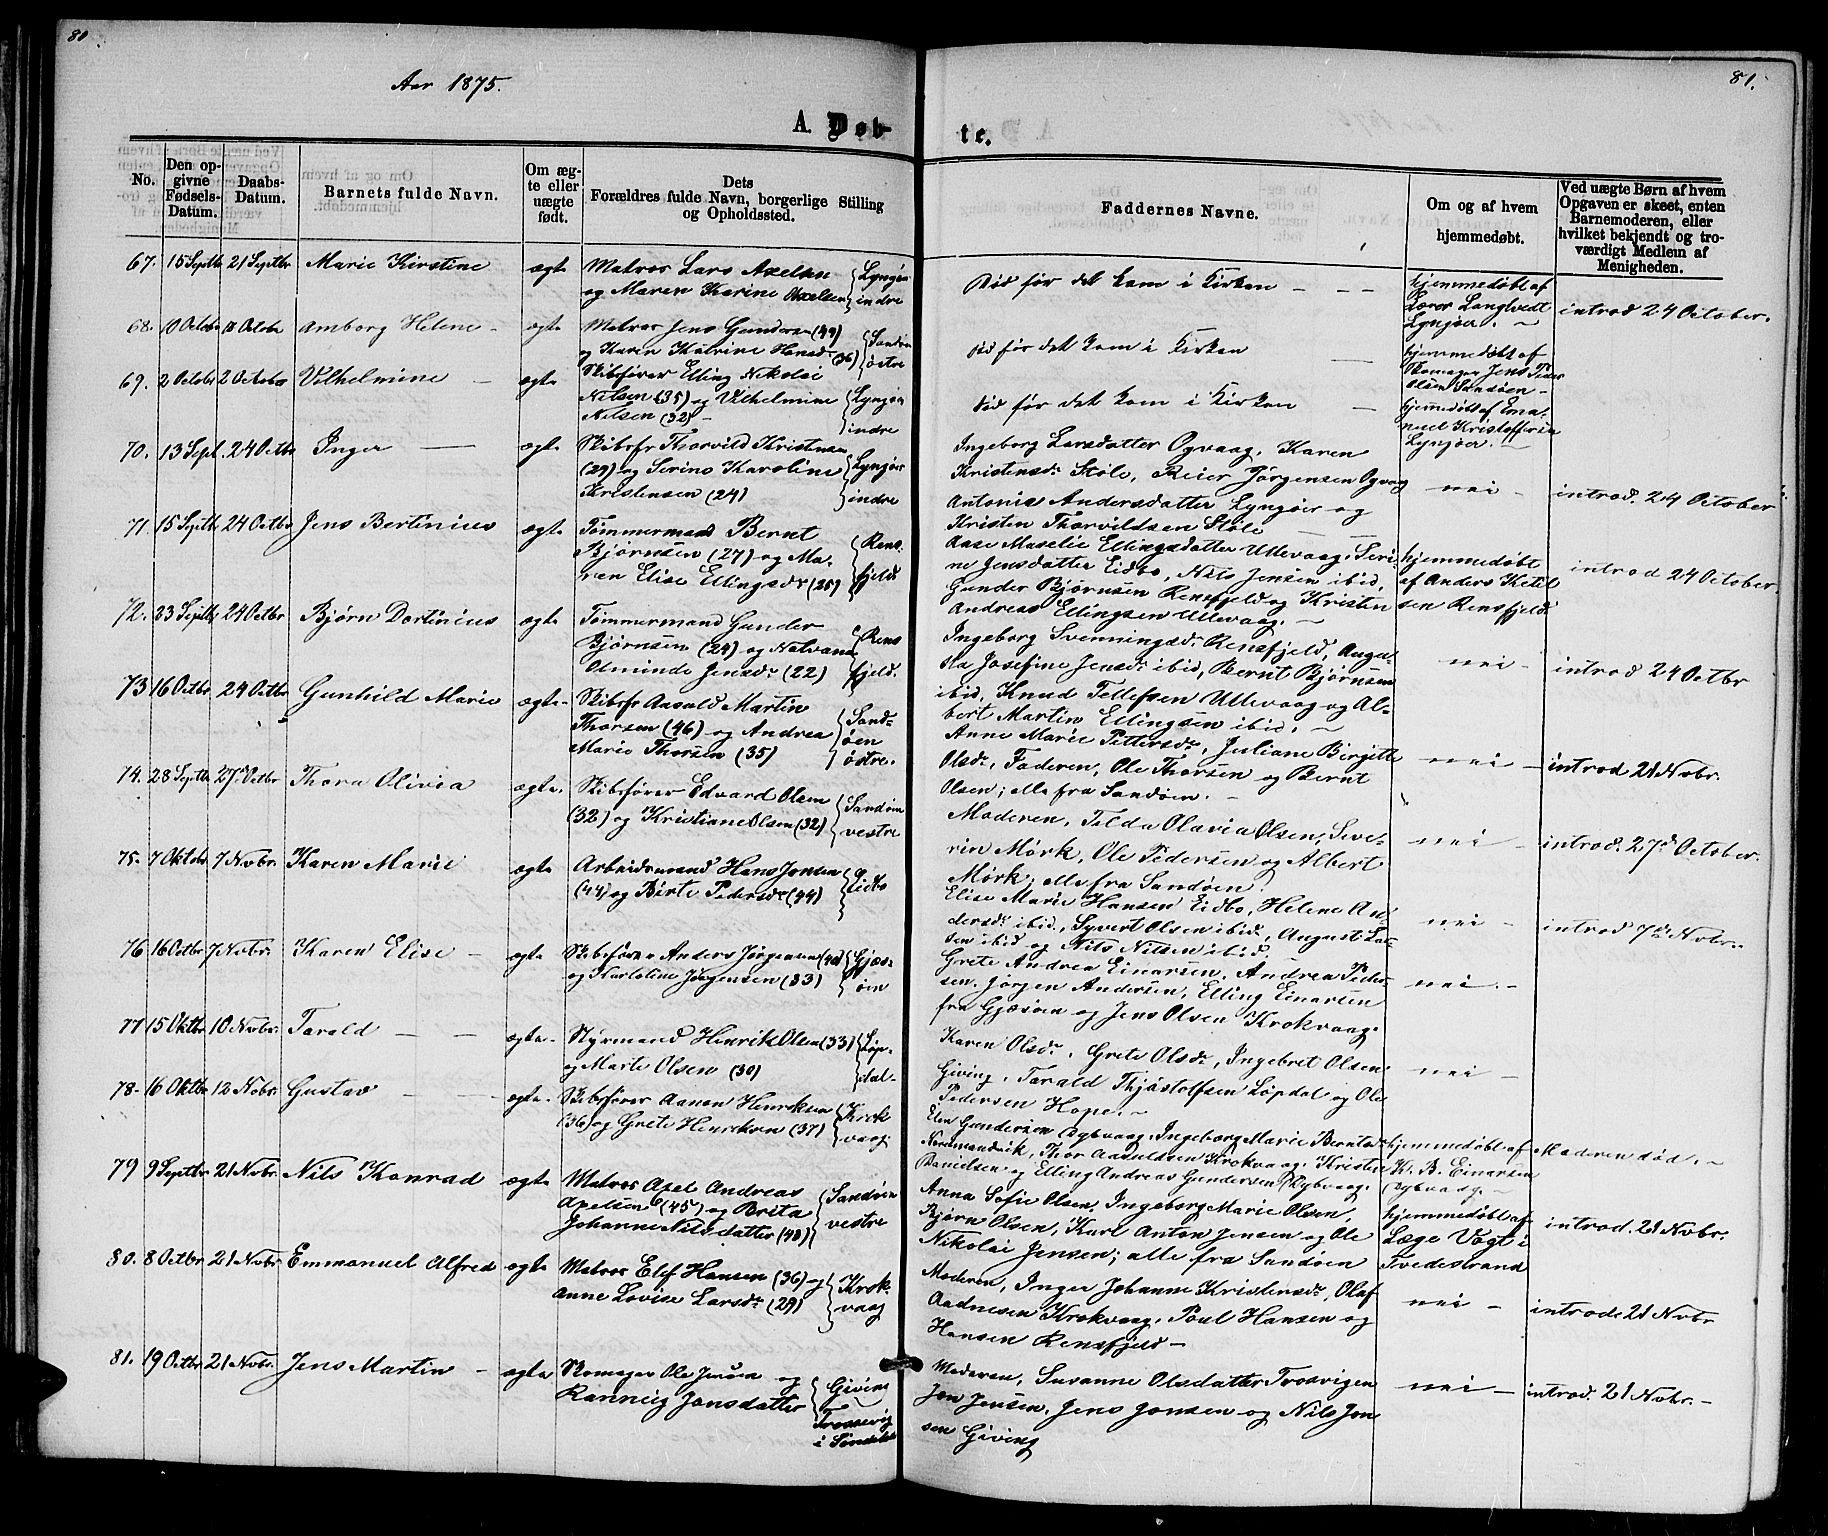 80.
81.
Aar 1875.
A. Døb-
te.
No.
Den op-
givne
Fødsels-
Datum.
Daabs-
Datum.
Barnets fulde Navn.
Om æg-
te eller
uægte
født.
Dets
Forældres fulde Navn, borgerlige Stilling
og Opholdssted.
Faddernes Navne.
Om og af hvem
hjemmedøbt.
Ved uægte Børn af hvem
Opgaven er skeet, enten
Barnemoderen, eller
hvilket bekjendt og tro-
værdigt Medlem af
Menigheden.
67. 15 Septbr 21 Septbr Marie Kirstine ægte Matros Lars Axelsen
og Maren Karine Axelsen
Lyngør
indre
Død før det kom i Kirken
hjemmedøbt af
Lærer Langtvedt
Lyngøer.
introd 24 October.
68. 10 Octobr Octobr Amborg Helene ægte Matros Jens Gundersen (49)
og Karen Katrine Hansdr (36)
Sandøen
østre
Død før det kom i Kirken
hjemmedøbt af
Skomager Jens Peder
Olsen Sandøen
69. 2 Octobr 2 Octobr Vilhelmine ægte Skibsfører Elling Nikolai
Nilsen (35) og Vilhelmine
Nilsen (32)
Lyngør
indre
Død før det kom i Kirken
hjemmedøbt af Ema-
nuel Kristoffersen
Lyngøer.
70. 13 Sept. 24 Octbr Inger ægte Skibsfr Thorvild Kristensen
(29) og Serine Karoline
Kristensen (24)
Lyngør
indre
Ingeborg Larsdatter Ogvaag, Karen
Kristensdr Støle, Reier Jørgensen Ogvaag
Antonie Andersdatter Lyngør og
Kristen Thorvildsen Støle
nei
introd. 24 October
71. 15 Septbr 24 Octbr Jens Bertinius ægte Tømmermand Bernt
Bjørnsen (27) og Ma-
ren Elise Ellingsdr (25)
Rens-
fjeld
Aase Maselie Ellingsdatter Ullevaag, Seri-
ne Jensdatter Eidbo, Nils Jensen ibid,
Gunder Bjørnsen Rensfjeld og Kristen
Andreas Ellingsen Ullevaag.
hjemmedøbt
af Anders Ketil-
sen Rensfjeld
introd 24 October
72. 23 Septbr 24 Octbr Bjørn Dortinius ægte Tømmermand Gunder
Bjørnsen (24) og Nalvana
Olminde Jensdr (22)
Rens
fjeld.
Ingeborg Svenningsdr Rensfjeld, Augu-
sta Josefine Jensdr ibid, Bernt Bjørnsen
ibid, Knud Tellefsen Ullevaag og Al-
bert Martin Ellingsen ibid.
nei
introd 24 Octbr
73 16 Octbr 24 Octbr Gunhild Marie ægte Skibsfr Aasold Martin
Thorsen (46) og Andrea
Marie Thorsen (35)
Sand-
øen
østre.
Anne Marie Pettersdr, Juliane Birgitte
Olsdr, Faderen, Ole Thorsen og Bernt
Olsen; alle fra Sandøen.
nei
introd 21 Novbr.
74. 28 Septbr 27 Octbr Thora Olivia ægte Skibsfører Edvard Olsen
(32) og Kristiane Olsen (32)
Sandøen
vestre
Moderen, Tilda Olavia Olsen, Seve-
rin Mørk, Ole Pedersen og Albert
Mørk; alle fra Sandøen.
nei
introd. 27de October.
75. 7 Oktobr 7 Novbr. Karen Marie ægte Arbeidsmand Hans Jensen
(44) og Birte Pedersdr (44)
Eidbo
Elise Marie Hansen Eidbo, Helene An-
dersdr ibid., Syvert Olsen ibid., August Lar-
sen ibid og Nils Nilsen ibid.
nei
introd 7de Novbr.
76. 16 Octbr 7 Novbr. Karen Elise ægte Skibsfører Anders Jørgensen (40)
og Karoline Jørgensen (33)
Gjæs-
øen
Grete Andrea Einarsen, Andrea Peder-
sen, Jørgen Andersen, Elling Einarsen
fra Gjæsøen og Jens Olsen Krokvaag.
nei.
77 15 Oktbr 10 Novbr. Tarald ægte Styrmand Henrik Olsen (33)
og Marte Olsen (30)
Løp-
dal
Karen Olsdr, Grete Olsdr, Ingebret Olsen
Giving, Tarald Thjøstolfsen Løpdal og Ole
Pedersen Hope.
nei
78. 16 Oktbr 12 Nobr. Gustav ægte Skibsfører Aanon Henriksen
(36) og Grete Henriksen (37)
Krok
vaag.
Elen Gundersen Dybvaag, Ingeborg Marie Berntsdr
Nordmandvik, Thor Aasulvsen Krokvaag, Kristen
Danielsen og Elling Andreas Gundersen Dybvaag.
hjemmedøbt af
K. B. Einarsen
Dybvaag.
Moderen død.
79 9 Septbr 21 Novbr. Nils Konrad ægte Matros Axel Andreas
Axelsen (45) og Brita
Johanne Nilsdatter (40)
Sandøen
vestre
Anna Sofie Olsen, Ingeborg Marie Olsen,
Bjørn Olsen, Karl Anton Jensen og Ole
Nikolai Jensen; alle fra Sandøen
hjemmedøbt af
Læge Vogt i
Tvedestrand
introd. 21 Novbr.
80. 8 Octbr 21 Novbr Emmanuel Alfred ægte Matros Elef Hansen (36) og
Anne Lovise Larsdr (29)
Krok-
vaag
Moderen, Inger Johanne Kristensdr, Olaf
Aadnesen Krokvaag, Poul Hansen og
Hansen Rensfjeld
nei
introd. 21 Novbr
81. 19 Octbr 21 Novbr. Jens Martin ægte Skomager Ole Jensen og
Ranneig Jonsdatter
Giving
Trosvig
i Søndeled
Moderen, Susanne Olsdatter Trosvigen
Jon Jensen, Jens Jonsen og Nils Jon-
sen Giving
nei
introd. 21 Novbr.